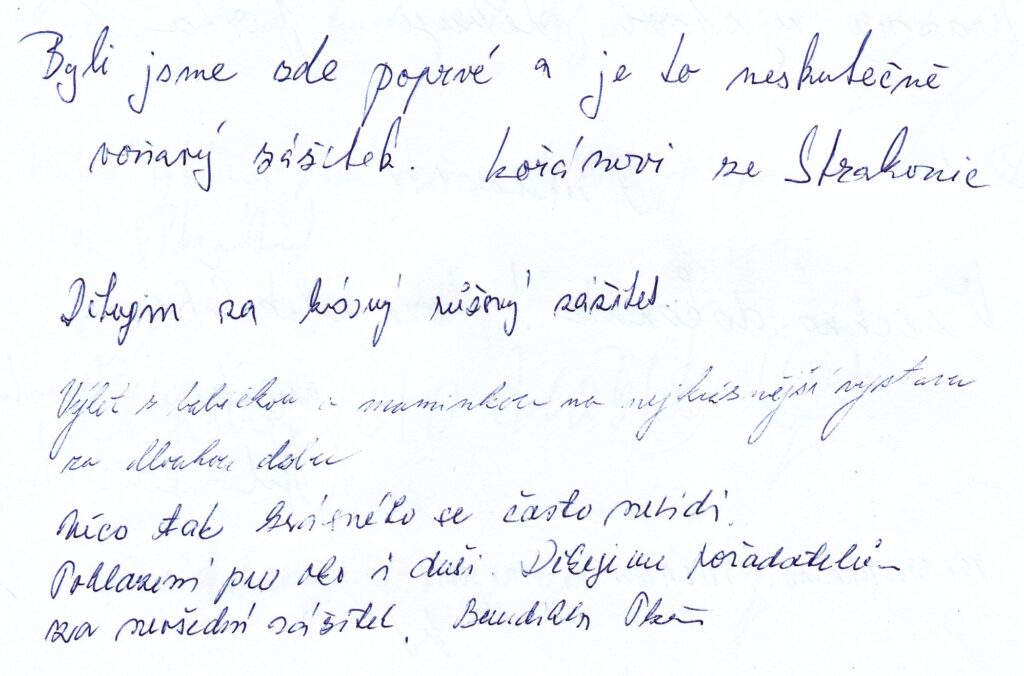 Byli jsme zde poprvé a je to neskutečně
voňavý zážitek. Kořánovi ze Strakonic
Děkujm za krásný růžový zážitek.
Výlet s babičkou a maminkou na nejkrásnější výstavu
za dlouhou dobu
Něco tak krásného se často nevidí.
Pohlazení pro oko i duši. Děkujeme pořadatelům
za nevšední zážitek.